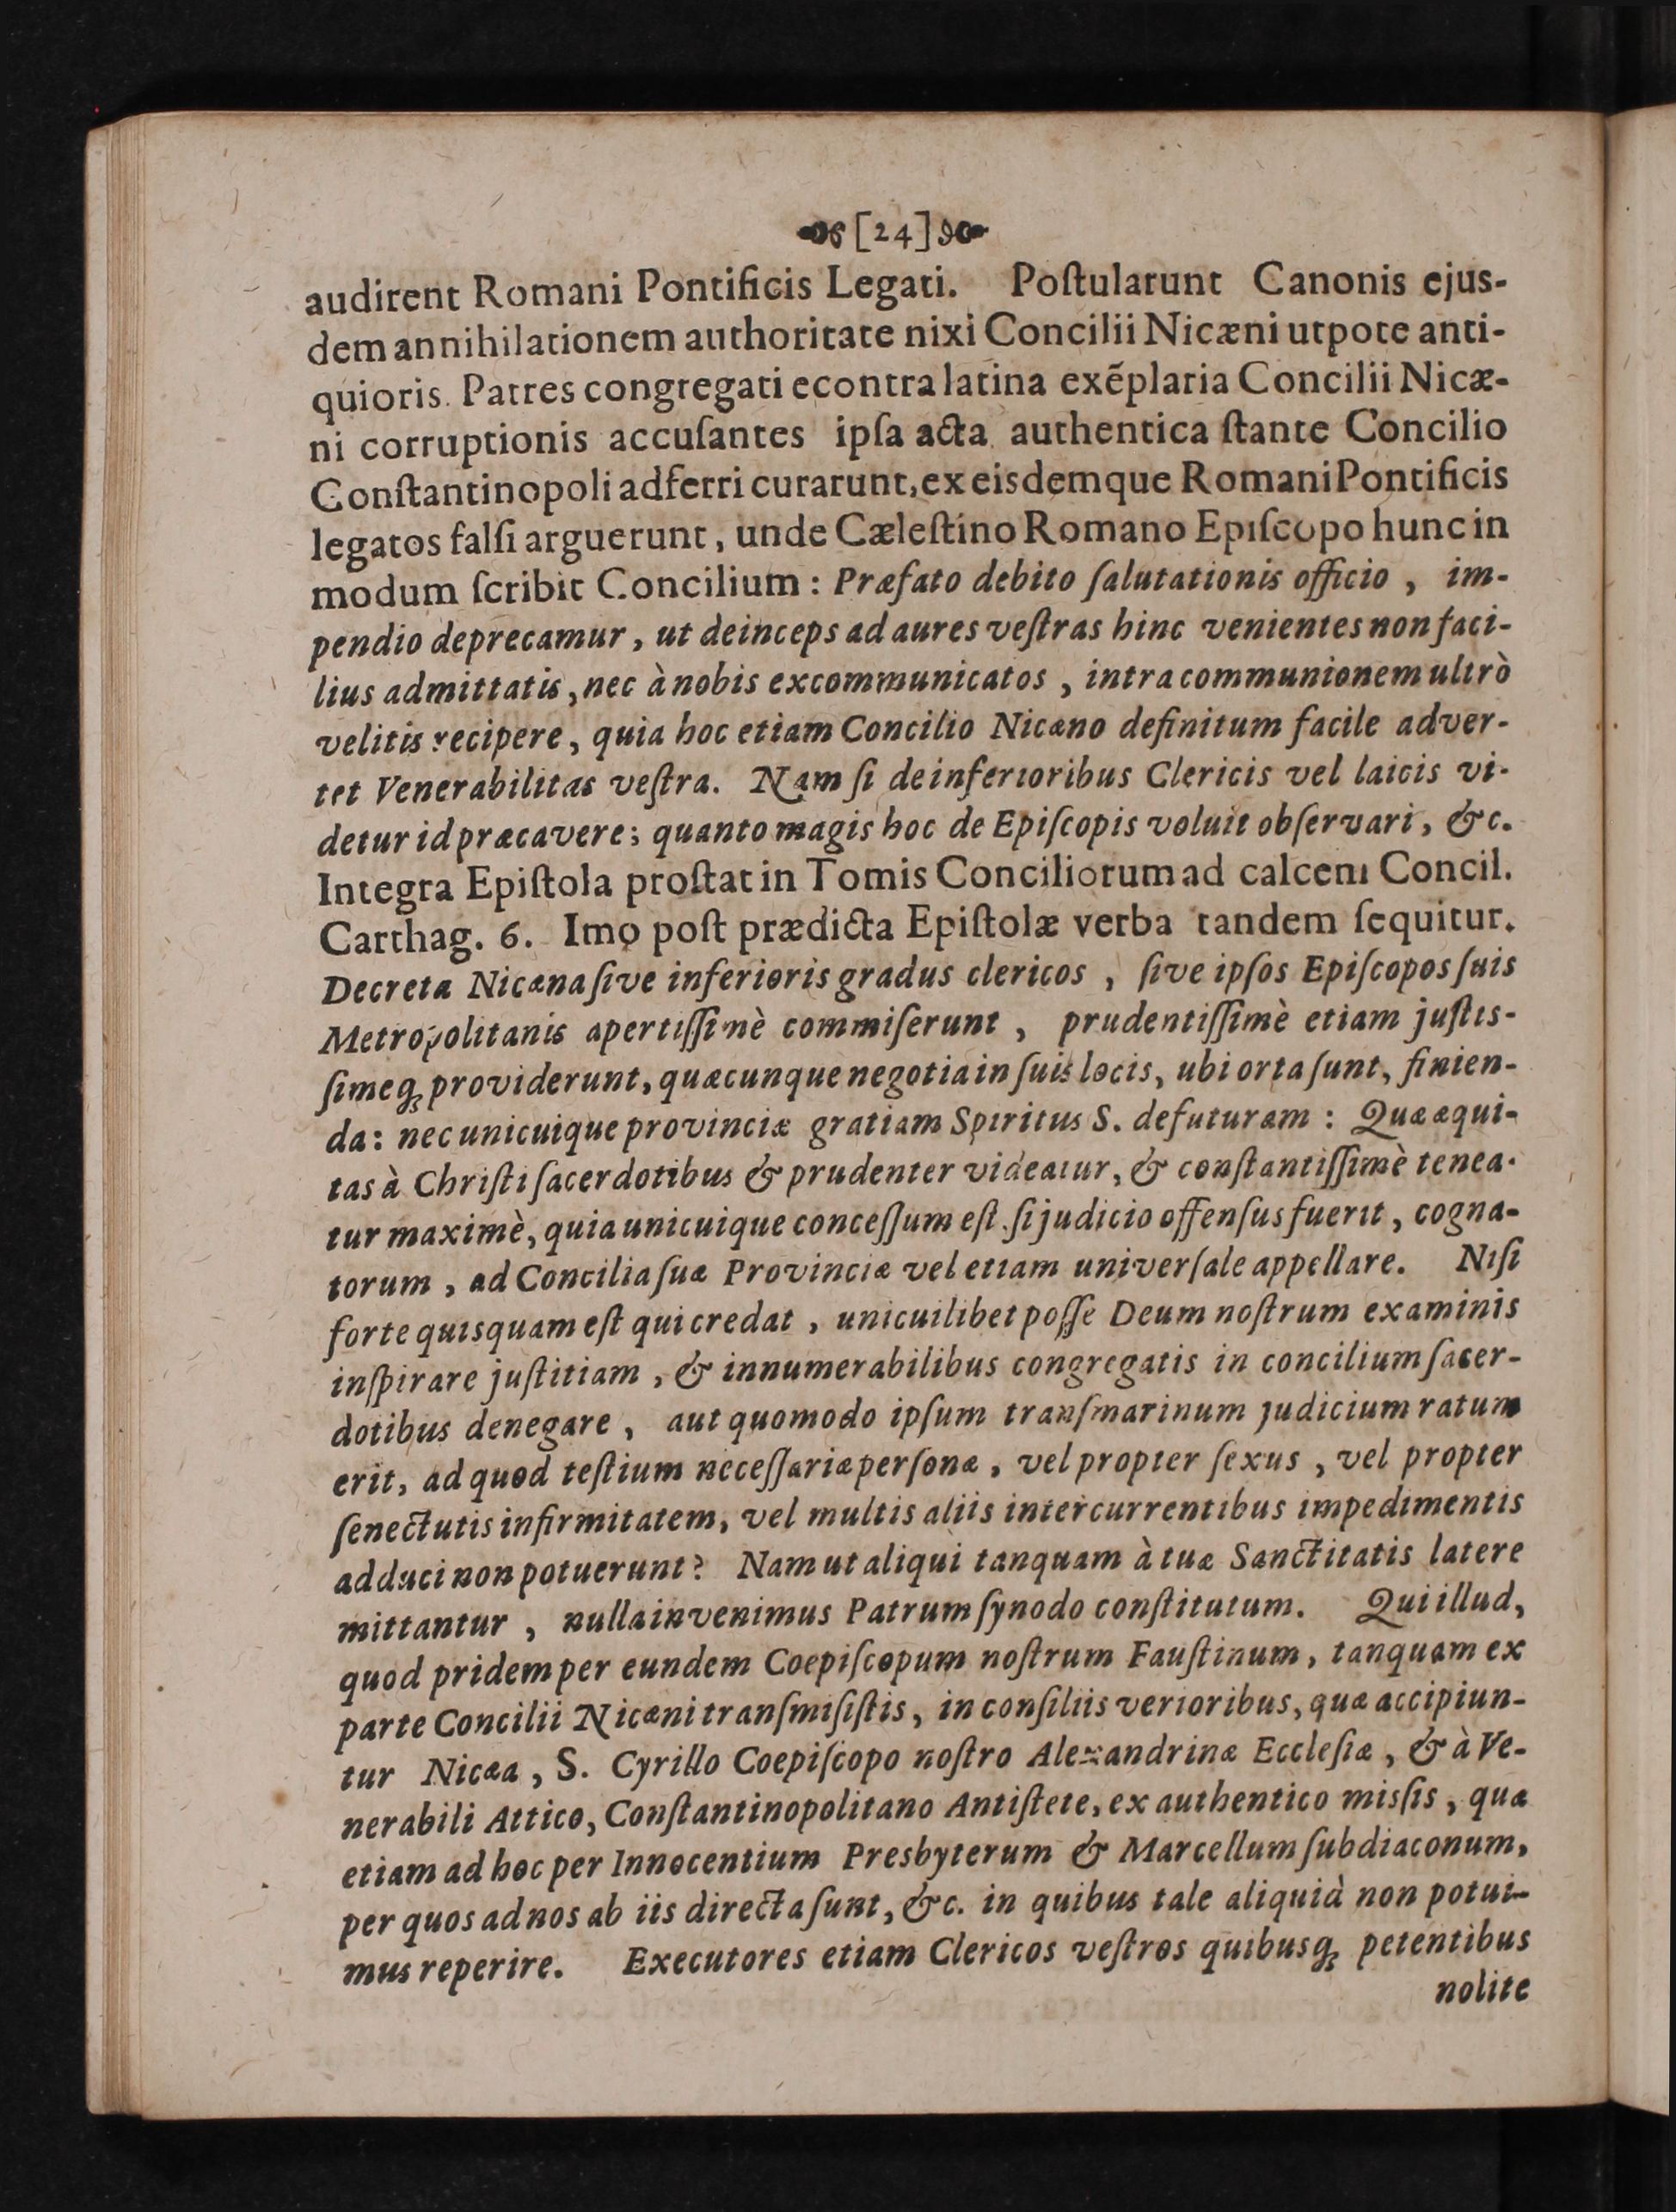 [24]
audirent Romani Pontificis Legati. Poſtularunt Canonis ejus-
dem annihilationem authoritate nixi Concilii Nicæni utpote anti-
quioris. Patres congregati econtra latina exẽplaria Concilii Nicæ-
ni corruptionis accuſantes ipſa acta authentica ſtante Concilio
Conſtantinopoli adferri curarunt, ex eisdemque Romani Pontificis
legatos falſi arguerunt, unde Cæleſtino Romano Epiſcopo hunc in
modum ſcribit Concilium: Præfato debito ſalutationis officio, im-
pendio deprecamur, ut deinceps ad aures veſtras hinc venientes non faci-
lius admittatis, nec à nobis excommunicatos, intra communionem ultrò
velitis recipere, quia hoc etiam Concilio Nicæno definitum facile adver-
tet Venerabilitas veſtra. Nam ſi de inferioribus Clericis vel laicis vi-
detur id præcavere; quanto magis hoc de Epiſcopis voluit obſervari, &c.
Integra Epiſtola proſtat in Tomis Conciliorum ad calcem Concil.
Carthag. 6. Imo poſt prædicta Epiſtolæ verba tandem ſequitur.
Decreta Nicæna ſive inferioris gradus clericos, ſive ipſos Epiſcopos ſuis
Metropolitanis apertiſſimè commiſerunt, prudentiſſimè etiam juſtis-
ſimeq; providerunt, quæcunque negotia in ſuis locis, ubi orta ſunt, finien-
da: nec unicuique provinciæ gratiam Spiritus S. defuturam: Quæ æqui-
tas à Chriſti ſacerdotibus & prudenter videatur, & conſtantiſſimè tenea-
tur maximè, quia unicuique conceſſum eſt. ſi judicio offenſus fuerit, cogna-
torum, ad Concilia ſuæ Provinciæ vel etiam univerſale appellare. Niſi
forte quisquam eſt qui credat, unicuilibet poſſe Deum noſtrum examinis
inſpirare juſtitiam, & innumerabilibus congregatis in concilium ſacer-
dotibus denegare, aut quomodo ipſum tranſmarinum judicium ratum
erit, ad quod teſtium neceſſariæ perſonæ, vel propter ſexus, vel propter
ſenectutis infirmitatem, vel multis aliis intercurrentibus impedimentis
adduci non potuerunt? Nam ut aliqui tanquam à tuæ Sanctitatis latere
mittantur, nulla invenimus Patrum ſynodo conſtitutum. Qui illud,
quod pridem per eundem Coepiſcopum noſtrum Fauſtinum, tanquam ex
parte Concilii Nicæni tranſmiſiſtis, in conſiliis verioribus, quæ accipiun-
tur Nicæa, S. Cyrillo Coepiſcopo noſtro Alexandrinæ Eccleſiæ, & à Ve-
nerabili Attico, Conſtantinopolitano Antiſtete, ex authentico misſis, quæ
etiam ad hoc per Innocentium Presbyterum & Marcellum ſubdiaconum,
per quos ad nos ab iis directa ſunt, &c. in quibus tale aliquid non potui-
mus reperire. Executores etiam Clericos veſtros quibusq; petentibus
nolite